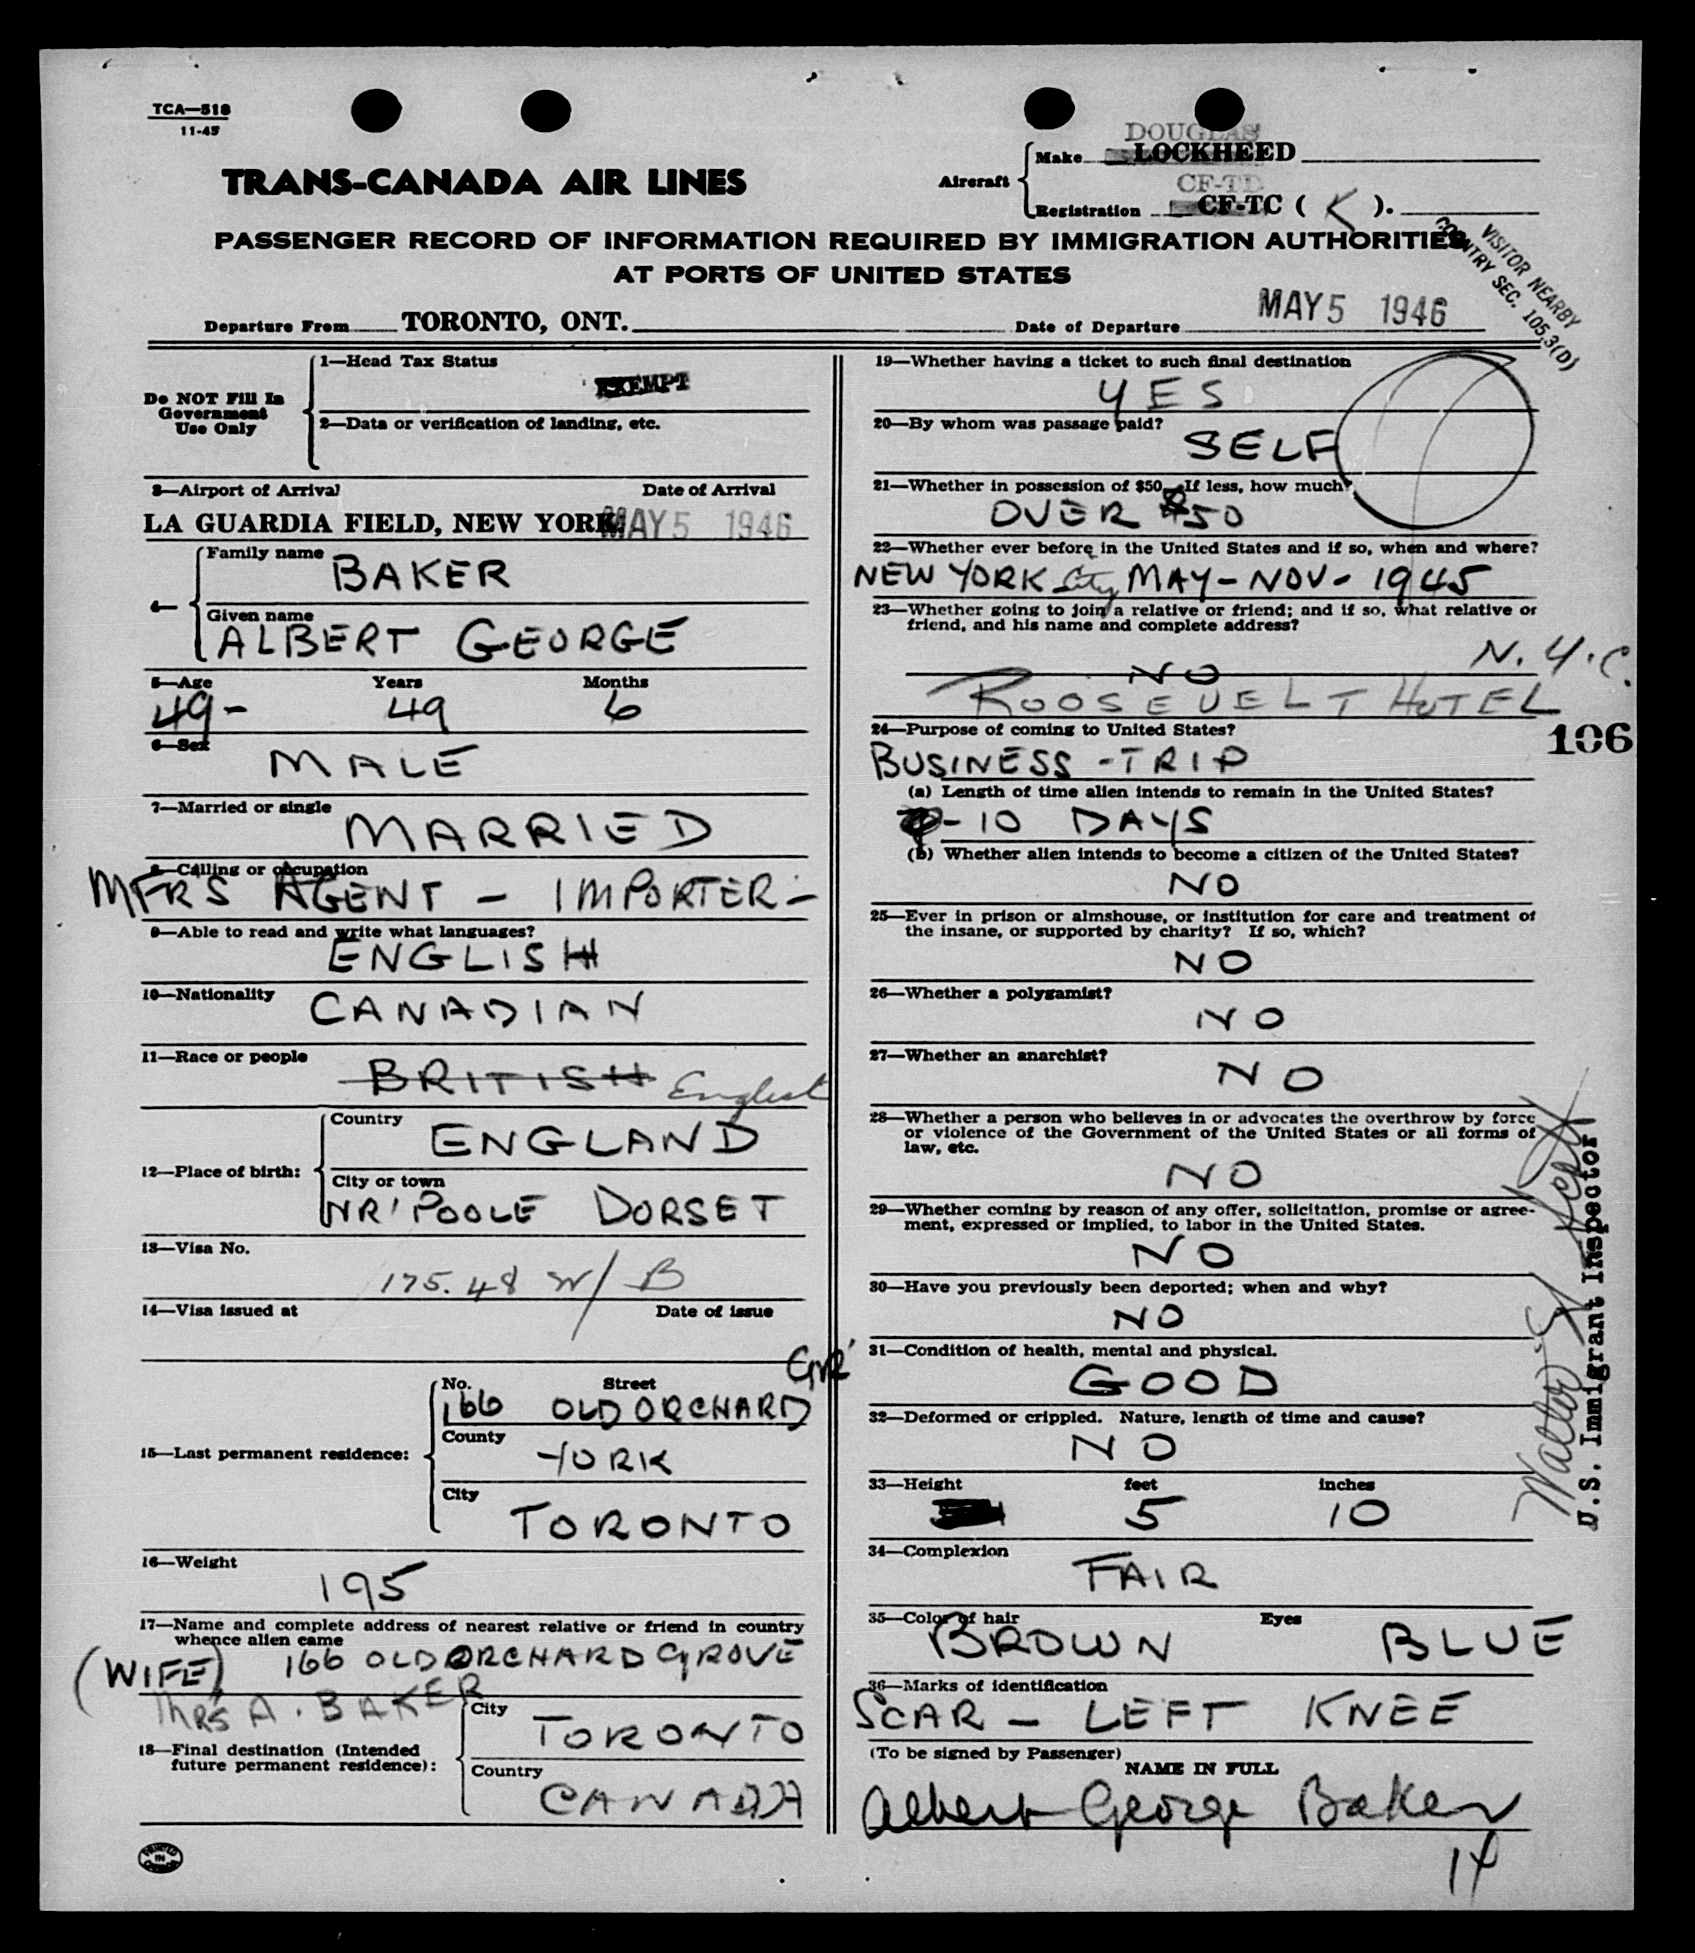 TCA—518
11-45
DOUGLAS
Make LOCKHEED
TRANS-CANADA AIR LINES
Aircraft
CF-TD
Registration CF-TC ( K ).
PASSENGER RECORD OF INFORMATION REQUIRED BY IMMIGRATION AUTHORITIES
AT PORTS OF UNITED STATES
VISITOR NEARBY
COUNTRY SEC. 105.3(D)
Departure From TORONTO, ONT.
Date of Departure MAY 5 1946
Do NOT Fill In
Government
Use Only
1—Head Tax Status
EXEMPT
2—Data or verification of landing, etc.
3—Airport of Arrival Date of Arrival
LA GUARDIA FIELD, NEW YORK. MAY 5 1946
4—
Family name BAKER
Given name
ALBERT GEORGE
5—Age Years Months
49- 49 6
6—Sex
MALE
7—Married or single
MARRIED
8—Calling or occupation
MFRS AGENT - IMPORTER -
9—Able to read and write what languages?
ENGLISH
10—Nationality
CANADIAN
11—Race or people
BRITISH English
12—Place of birth:
Country
ENGLAND
City or town
NR' POOLE DORSET
13—Visa No.
175.48 W/B
14—Visa issued at Date of issue
15—Last permanent residence:
No. Street GVR'
166 OLD ORCHARD
County
YORK
City
TORONTO
16—Weight
195
17—Name and complete address of nearest relative or friend in country
whence alien came
(WIFE) 166 OLD ORCHARD GROVE
MRS A. BAKER
18—Final destination (Intended
future permanent residence):
City
TORONTO
Country
CANADA
PRINTED
IN
CANADA
19—Whether having a ticket to such final destination
YES
20—By whom was passage paid?
SELF
21—Whether in possession of $50. If less, how much?
OVER $50
22—Whether ever before in the United States and if so, when and where?
NEW YORK City MAY - NOV - 1945
23—Whether going to join a relative or friend; and if so, what relative or
friend, and his name and complete address?
NO N.Y.C.
ROOSEVELT HOTEL
24—Purpose of coming to United States?
106
BUSINESS - TRIP
(a) Length of time alien intends to remain in the United States?
-10 DAYS
(b) Whether alien intends to become a citizen of the United States?
NO
25—Ever in prison or almshouse, or institution for care and treatment of
the insane, or supported by charity? If so, which?
NO
26—Whether a polygamist?
NO
27—Whether an anarchist?
NO
28—Whether a person who believes in or advocates the overthrow by force
or violence of the Government of the United States or all forms of
law, etc.
NO
29—Whether coming by reason of any offer, solicitation, promise or agree-
ment, expressed or implied, to labor in the United States.
NO
30—Have you previously been deported; when and why?
NO
31—Condition of health, mental and physical.
GOOD
32—Deformed or crippled. Nature, length of time and cause?
NO
33—Height feet inches
5 10
34—Complexion
FAIR
35—Color of hair Eyes
BROWN BLUE
36—Marks of identification
SCAR - LEFT KNEE
(To be signed by Passenger)
NAME IN FULL
Albert George Baker
14
Walter S
U.S. Immigrant Inspector